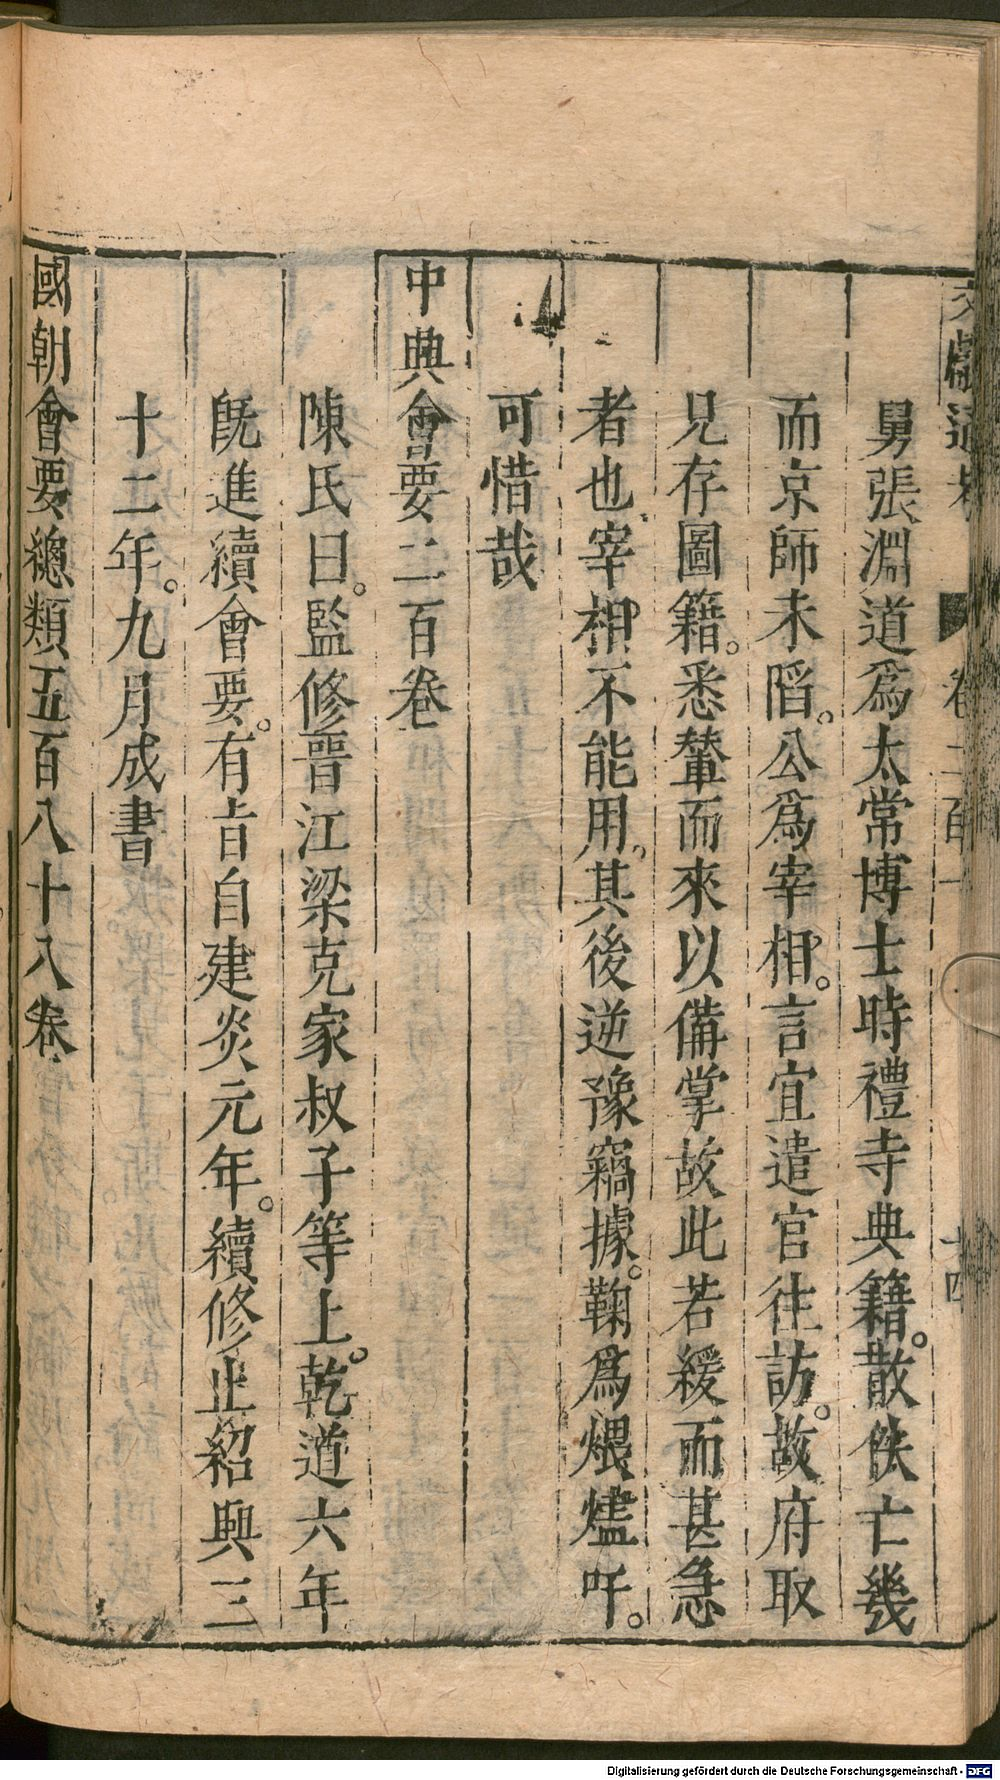 文獻通考 卷二百一 十四
舅張淵道為太常博士時禮寺典籍。散佚亡幾
而京師未䧟。公為宰相。言宜遣官往訪。故府取
見存圖籍。悉輦而來以備掌故此若緩而甚急
者也、宰相不能用。其後逆豫竊據。鞠為煨燼吁。
可惜哉
中興會要二百卷
陳氏曰。監修晉江梁克家叔子等上。乾道六年
旣進續會要。有旨自建炎元年。續修止紹興三
十二年。九月成書
國朝會要總類五百八十八卷
Digitalisierung gefördert durch die Deutsche Forschungsgemeinschaft - DFG